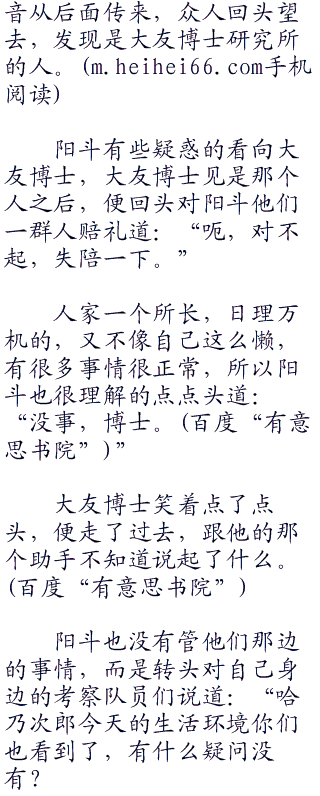 音从后面传来，众人回头望
去，发现是大友博士研究所
的人。(m.heihei66.com手机
阅读)
阳斗有些疑惑的看向大
友博士，大友博士见是那个
人之后，便回头对阳斗他们
一群人赔礼道：“呃，对不
起，失陪一下。”
人家一个所长，日理万
机的，又不像自己这么懒，
有很多事情很正常，所以阳
斗也很理解的点点头道：
“没事，博士。(百度“有意
思书院”)”
大友博士笑着点了点
头，便走了过去，跟他的那
个助手不知道说起了什么。
(百度“有意思书院”)
阳斗也没有管他们那边
的事情，而是转头对自己身
边的考察队员们说道：“哈
乃次郎今天的生活环境你们
也看到了，有什么疑问没
有？